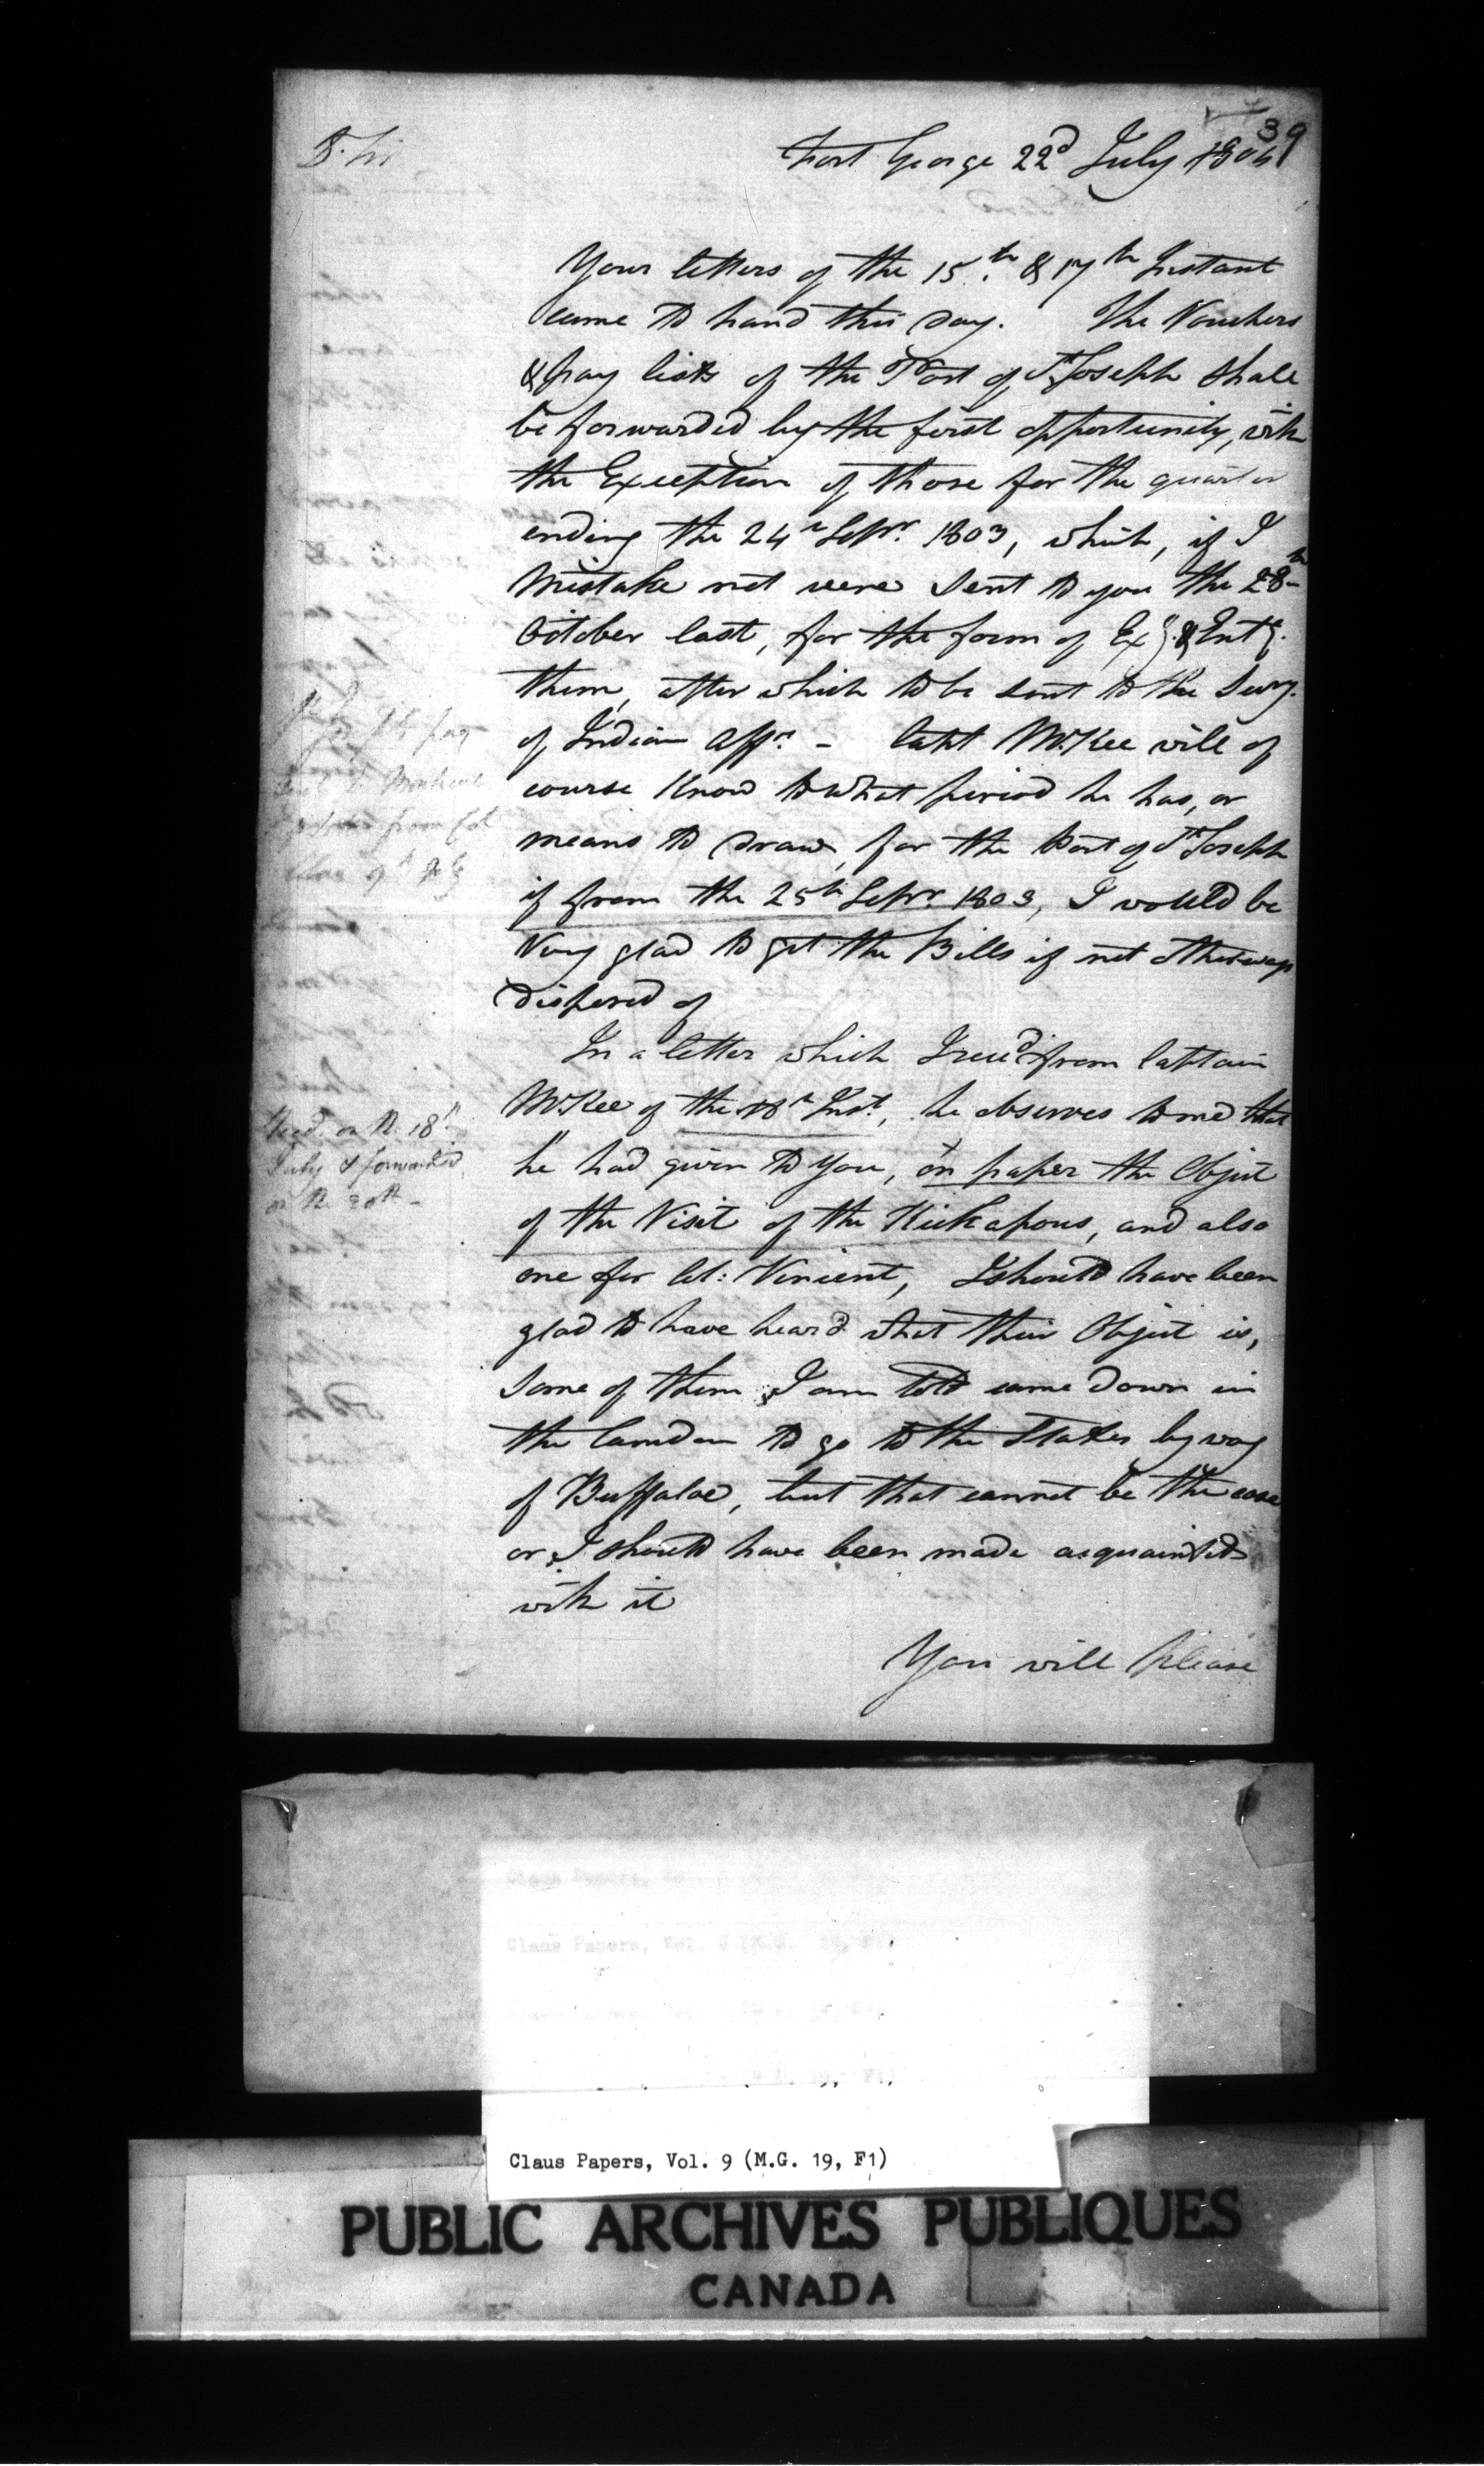 39
D. Sir
Fort George 22d July 1804
Your letters of the 15th. & 17th Instant
came to hand this day. The Vouchers
& pay lists of the Post of St. Joseph shall
be forwarded by the first opportunity, with
the Exception of those for the quarter
ending the 24th Sepr. 1803, which, if I
mistake not were sent to you the 28th
October last, for the form of Exg. & Entg.
them, after which to be sent to the Secy.
of Indian Affrs. - Capt McKee will of
course know to what period he has, or
means to draw, for the Post of St. Joseph
if from the 25th Sepr. 1803, I would be
Very glad to get the Bills if not otherways
disposed of
In a letter which I recd. from Captain
McKee of the Inst., he observes to me that
he had given to you, on paper the Object
of the Visit of the Kickapous, and also
one for Col: Vincent, I should have been
glad to have heard what their Object is,
some of them I am told came down in
the Camden to go to the States by way
of Buffaloe, but that cannot be the case
or I should have been made acquainted
with it
You will please
from Col
Recd. on the 18th
July & forwarded
on the 20th -
Claus Papers, Vol. 9 (M.G. 19, F1)
PUBLIC ARCHIVES PUBLIQUES
CANADA